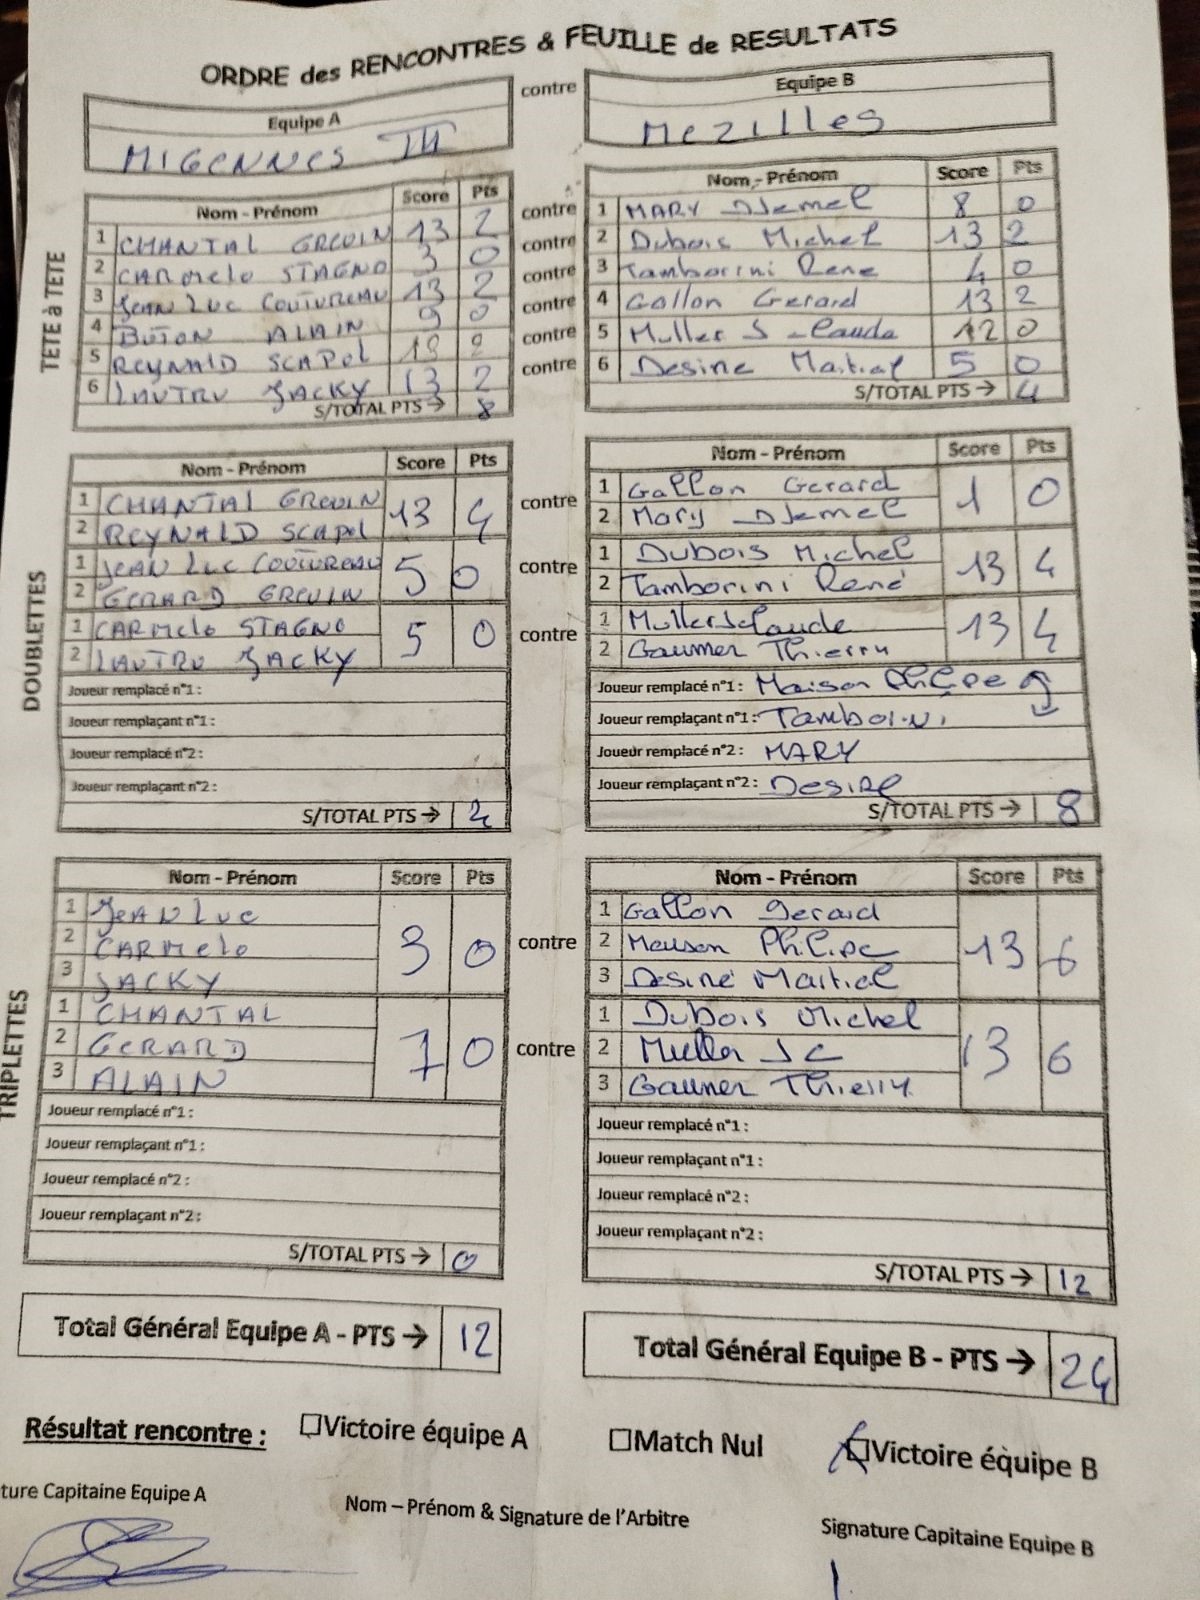 ORDRE des RENCONTRES & FEUILLE de RESULTATS
Equipe A contre Equipe B
MIGENNES III MEZILLES
TETE à TETE
Nom - Prénom Score Pts
1 CHANTAL GREUIN 13 2
2 CARMELO STAGNO 3 0
3 JEAN LUC COUTUREAU 13 2
4 BUTON ALAIN 9 0
5 REYNALD SCAPOL 13 2
6 LAUTRU JACKY 13 2
S/TOTAL PTS → 8
contre
contre
contre
contre
contre
contre
Nom - Prénom Score Pts
1 MARY DJemel 8 0
2 Dubois Michel 13 2
3 Tamborini Rene 4 0
4 Gallon Gerard 13 2
5 Muller J-Claude 12 0
6 Desiré Martial 5 0
S/TOTAL PTS → 4
DOUBLETTES
Nom - Prénom Score Pts
1 CHANTAL GREUIN 13 4
2 REYNALD SCAPOL
1 JEAN LUC COUTUREAU 5 0
2 GERARD GREUIN
1 CARMELO STAGNO 5 0
2 LAUTRU JACKY
Joueur remplacé n°1 :
Joueur remplaçant n°1 :
Joueur remplacé n°2 :
Joueur remplaçant n°2 :
S/TOTAL PTS → 4
contre
contre
contre
Nom - Prénom Score Pts
1 Gallon Gerard 1 0
2 Mary DJemel
1 Dubois Michel 13 4
2 Tamborini René
1 Muller J Claude 13 4
2 Gaumer Thierry
Joueur remplacé n°1 : Maison Philipe
Joueur remplaçant n°1 : Tamborini
Joueur remplacé n°2 : MARY
Joueur remplaçant n°2 : DESIRE
S/TOTAL PTS → 8
TRIPLETTES
Nom - Prénom Score Pts
1 JEAN LUC 3 0
2 CARMELO
3 JACKY
1 CHANTAL 7 0
2 GERARD
3 ALAIN
Joueur remplacé n°1 :
Joueur remplaçant n°1 :
Joueur remplacé n°2 :
Joueur remplaçant n°2 :
S/TOTAL PTS → 0
contre
contre
Nom - Prénom Score Pts
1 Gallon Gerard 13 6
2 Maison Philipe
3 Desiré Martial
1 Dubois Michel 13 6
2 Muller JC
3 Gaumer Thierry
Joueur remplacé n°1 :
Joueur remplaçant n°1 :
Joueur remplacé n°2 :
Joueur remplaçant n°2 :
S/TOTAL PTS → 12
Total Général Equipe A - PTS → 12
Total Général Equipe B - PTS → 24
Résultat rencontre : Victoire équipe A Match Nul Victoire équipe B
ture Capitaine Equipe A
Nom – Prénom & Signature de l'Arbitre
Signature Capitaine Equipe B